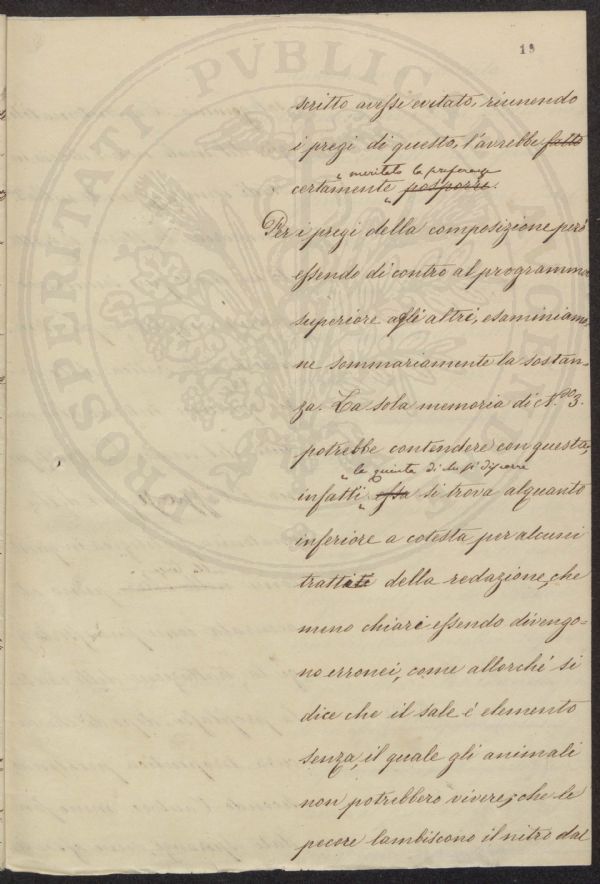 PROSPERITATI PVBLICAE AVGENDAE
13
scritto avesse evitato, riunendo
i pregi di questo, l'avrebbe fatto
meritato la preferenza
certamente posporre.
Per i pregi della composizione però
essendo di contro al programma
superiore agli altri, esaminiamo,
ne sommariamente la sostan-
za. La sola memoria di N.º 3.
potrebbe contendere con questa,
infatti essa si trova alquanto
inferiore a cotesta per alcuni
tratti della redazione, che
meno chiari essendo divengo-
no erronei, come allorché si
dice che il sale é elemento
senza, il quale gli animali
non potrebbero vivere; che le
pecore lambiscono il nitro dal